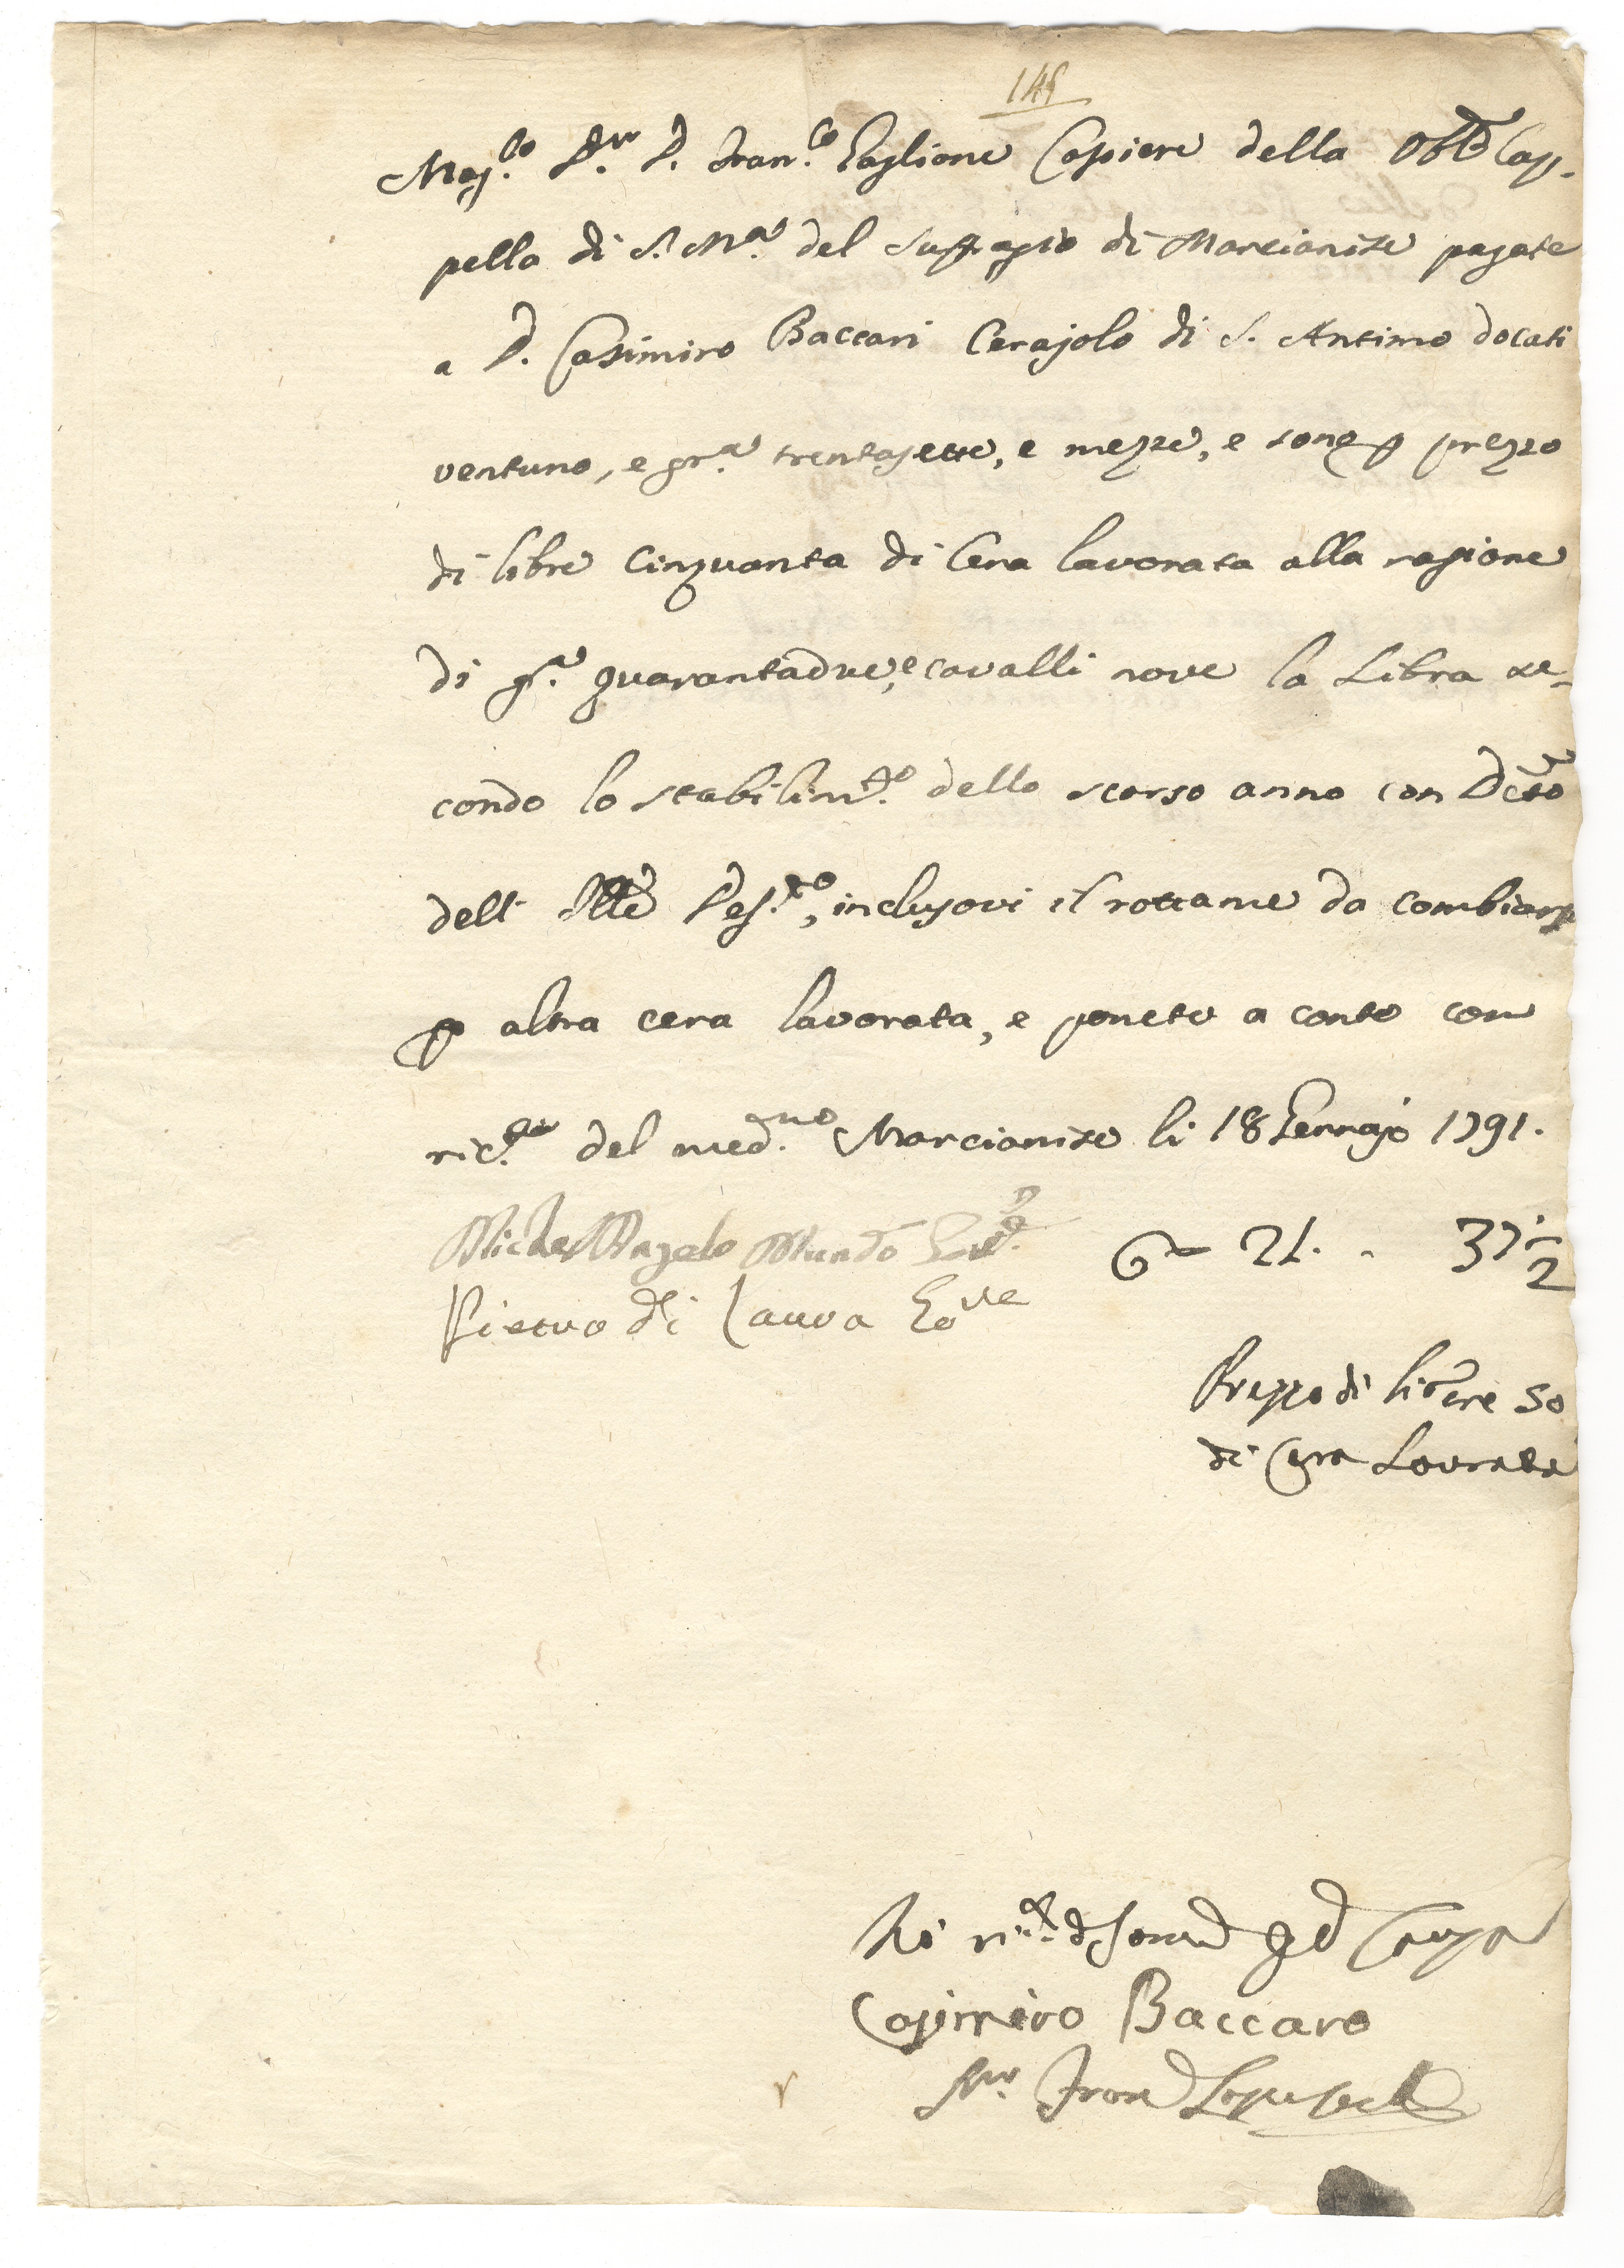 149
Mag.co D.r D. Fran.co Taglione Casiere della Ven.le Cap-
pella di S. M.a del Suffragio di Marcianise pagate
a D. Casimiro Baccari Cerajolo di S. Antimo docati
ventuno, e gr.a trentasette, e mezze, e sono p prezzo
di libre Cinquanta di Cera lavorata alla ragione
di gr.a quarantadue, e cavalli nove la Libra se-
condo lo stabilim.to dello scorso anno con Dēto
dell' Ill.e, inclusovi il rottame da combiarsi
p altra cera lavorata, e ponete a conto con
ric.ta del med.mo Marcianise li 18 Gennajo 1791.
Michel'Angelo Mundo
21. - 37 1/2
Pietro di Lauro
Prezzo di libre 50
di Cera Lavorata
Casimiro Baccaro